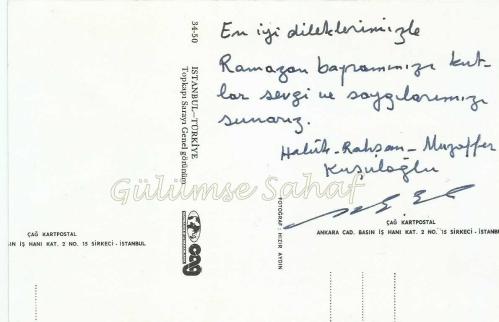 En iyi dileklerimizle
Ramazan bayramınızı kut-
lar sevgi ve saygılarımızı
sunarız.
Halûk-Rahşan-Muzaffer
Kuşuloğlu
34-50
ISTANBUL-TÜRKİYE
Topkapı Sarayı Genel görünüm
Gülümse Sahaf
FOTOĞRAF : HIZIR AYDIN
ÇAĞ KARTPOSTAL
IN İŞ HANI KAT. 2 NO. 15 SİRKECİ - İSTANBUL
ÇAĞ KARTPOSTAL
ANKARA CAD. BASIN İŞ HANI KAT. 2 NO. 15 SİRKECİ - İSTANB